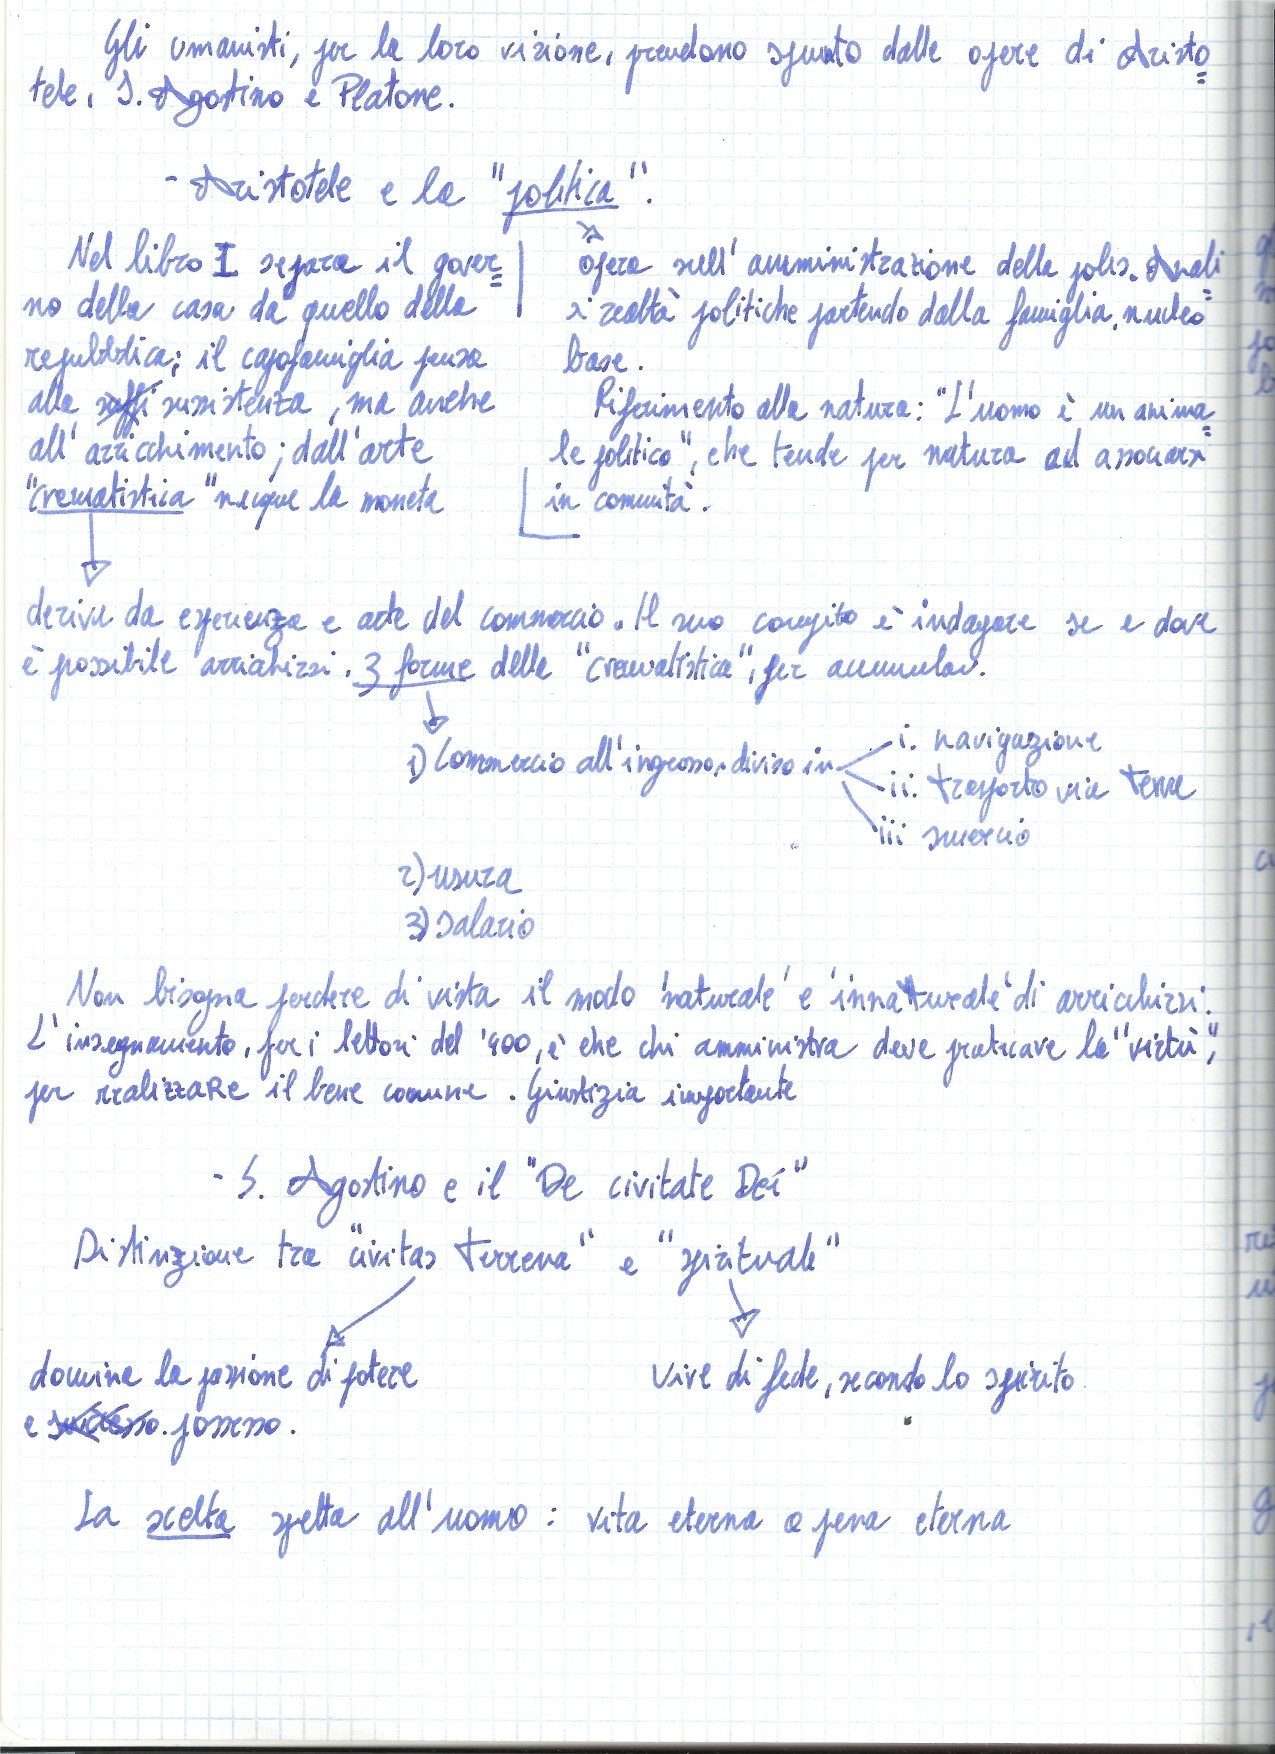 Gli umanisti, per la loro visione, prendono spunto dalle opere di Aristo
tele, S. Agostino e Platone.
- Aristotele e la "politica".
Nel libro I separa il gover
no della casa da quello della
repubblica; il capofamiglia pensa
alla suffi sussistenza, ma anche
all'arricchimento; dall'arte
"crematistica" nacque la moneta
opera sull'amministrazione della polis. Anali
si realtà politiche partendo dalla famiglia, nucleo
base.
Riferimento alla natura: "L'uomo è un anima
le politico", che tende per natura ad associarsi
in comunità.
deriva da esperienza e arte del commercio. Il suo compito è indagare se e dove
è possibile arrichirsi. 3 forme della "crematistica", per accumular.
1) Commercio all'ingrosso, diviso in
i. navigazione
ii. trasporto via terra
iii smercio
2) usura
3) salario
Non bisogna perdere di vista il modo 'naturale' e 'innaturale' di arricchirsi.
L'insegnamento, per i lettori del '400, è che chi amministra deve praticare la "virtù",
per realizzare il bene comune. Giustizia importante
- S. Agostino e il "De civitate Dei"
Distinzione tra "civitas terrena" e "spirituale"
domina la passione di potere
e successo. possesso.
vive di fede, secondo lo spirito
La scelta spetta all'uomo: vita eterna o pena eterna